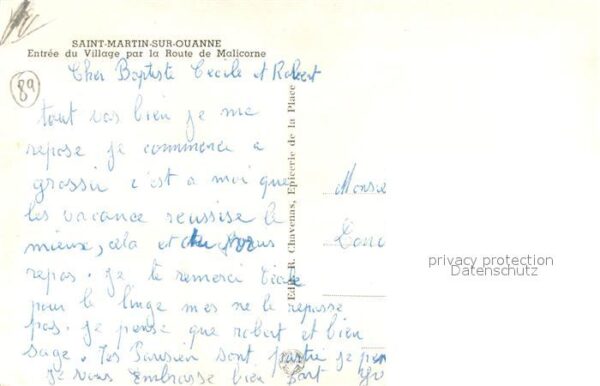 SAINT-MARTIN-SUR-OUANNE
Entrée du Village par la Route de Malicorne
89
Cher Baptiste Cecile et Robert
tout vas bien je me
repose je commence a
grossir c'est a moi que
les vacance reussise le
mieux, cela et du
repos. je te remerci Cecile
pour le linge mes ne le repasse
pas. je pense que robert et bien
sage. les Parisien sont partie je
je vous embrasse bien fort
Edit. R. Chavenas, Epicerie de la Place
privacy protection
Datenschutz